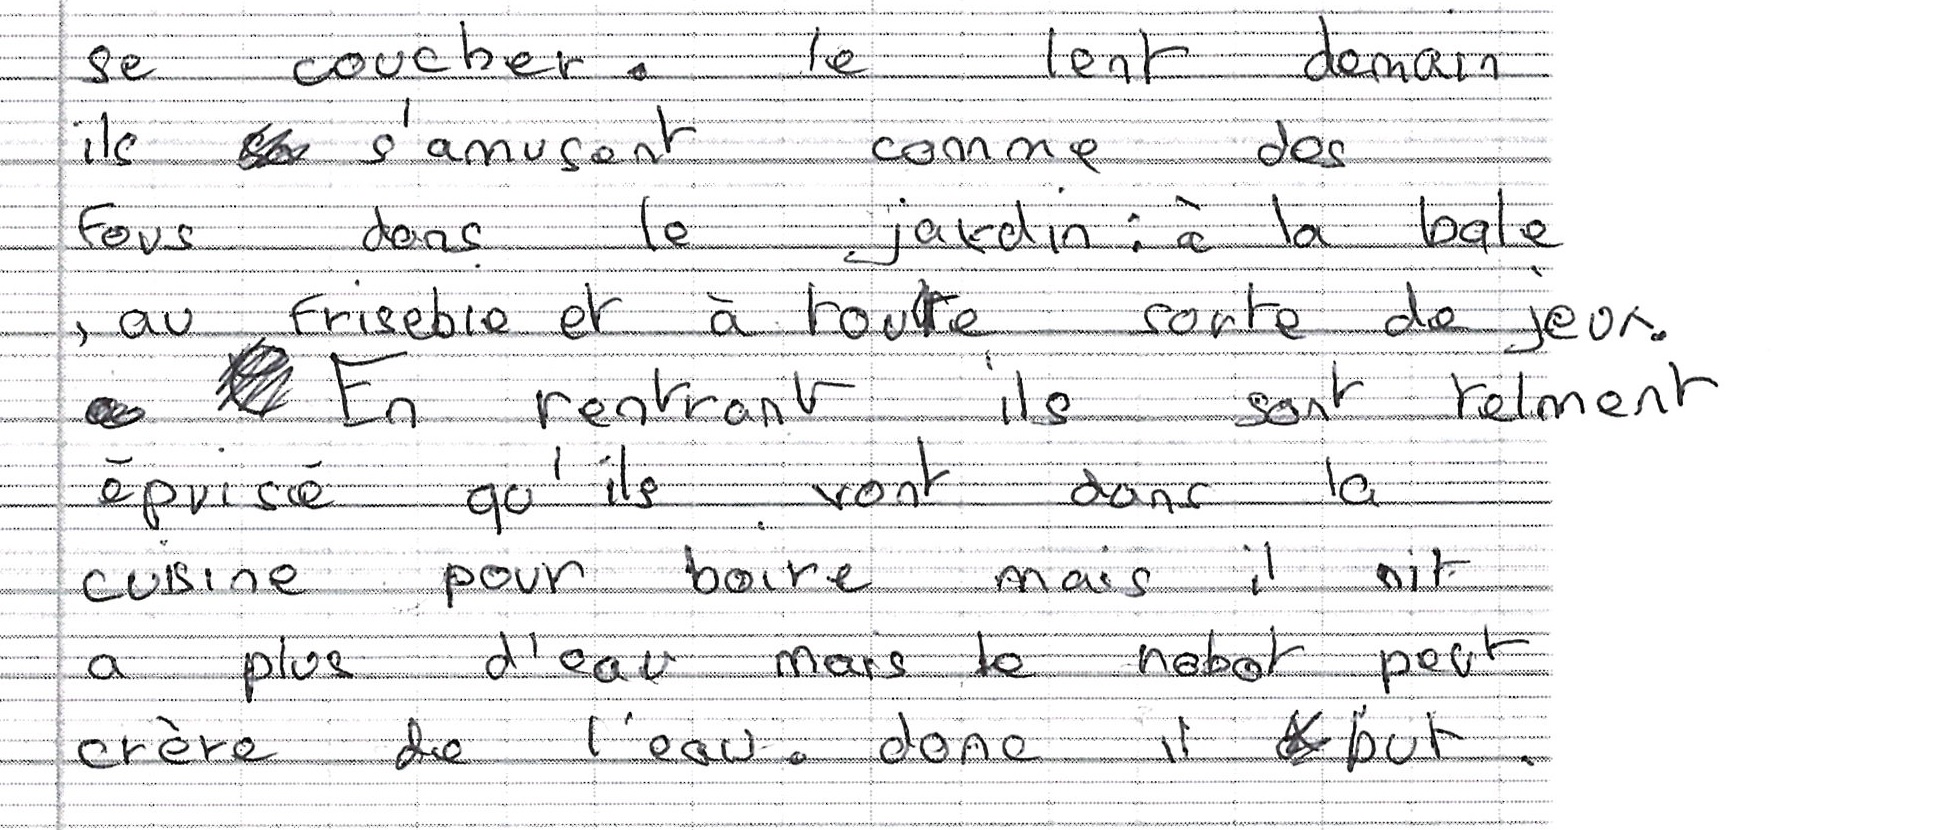 se coucher. le lent demain
ils s'amusent comme des
fous dans le jardin : à la bale
, au frisebie et à toutte sorte de jeux.
En rentrant ils sont telment
épuisé qu'ils vont dans la
cuisine pour boire mais il nit
a plus d'eau mais le robot peut
crère de l'eau. donc il but.